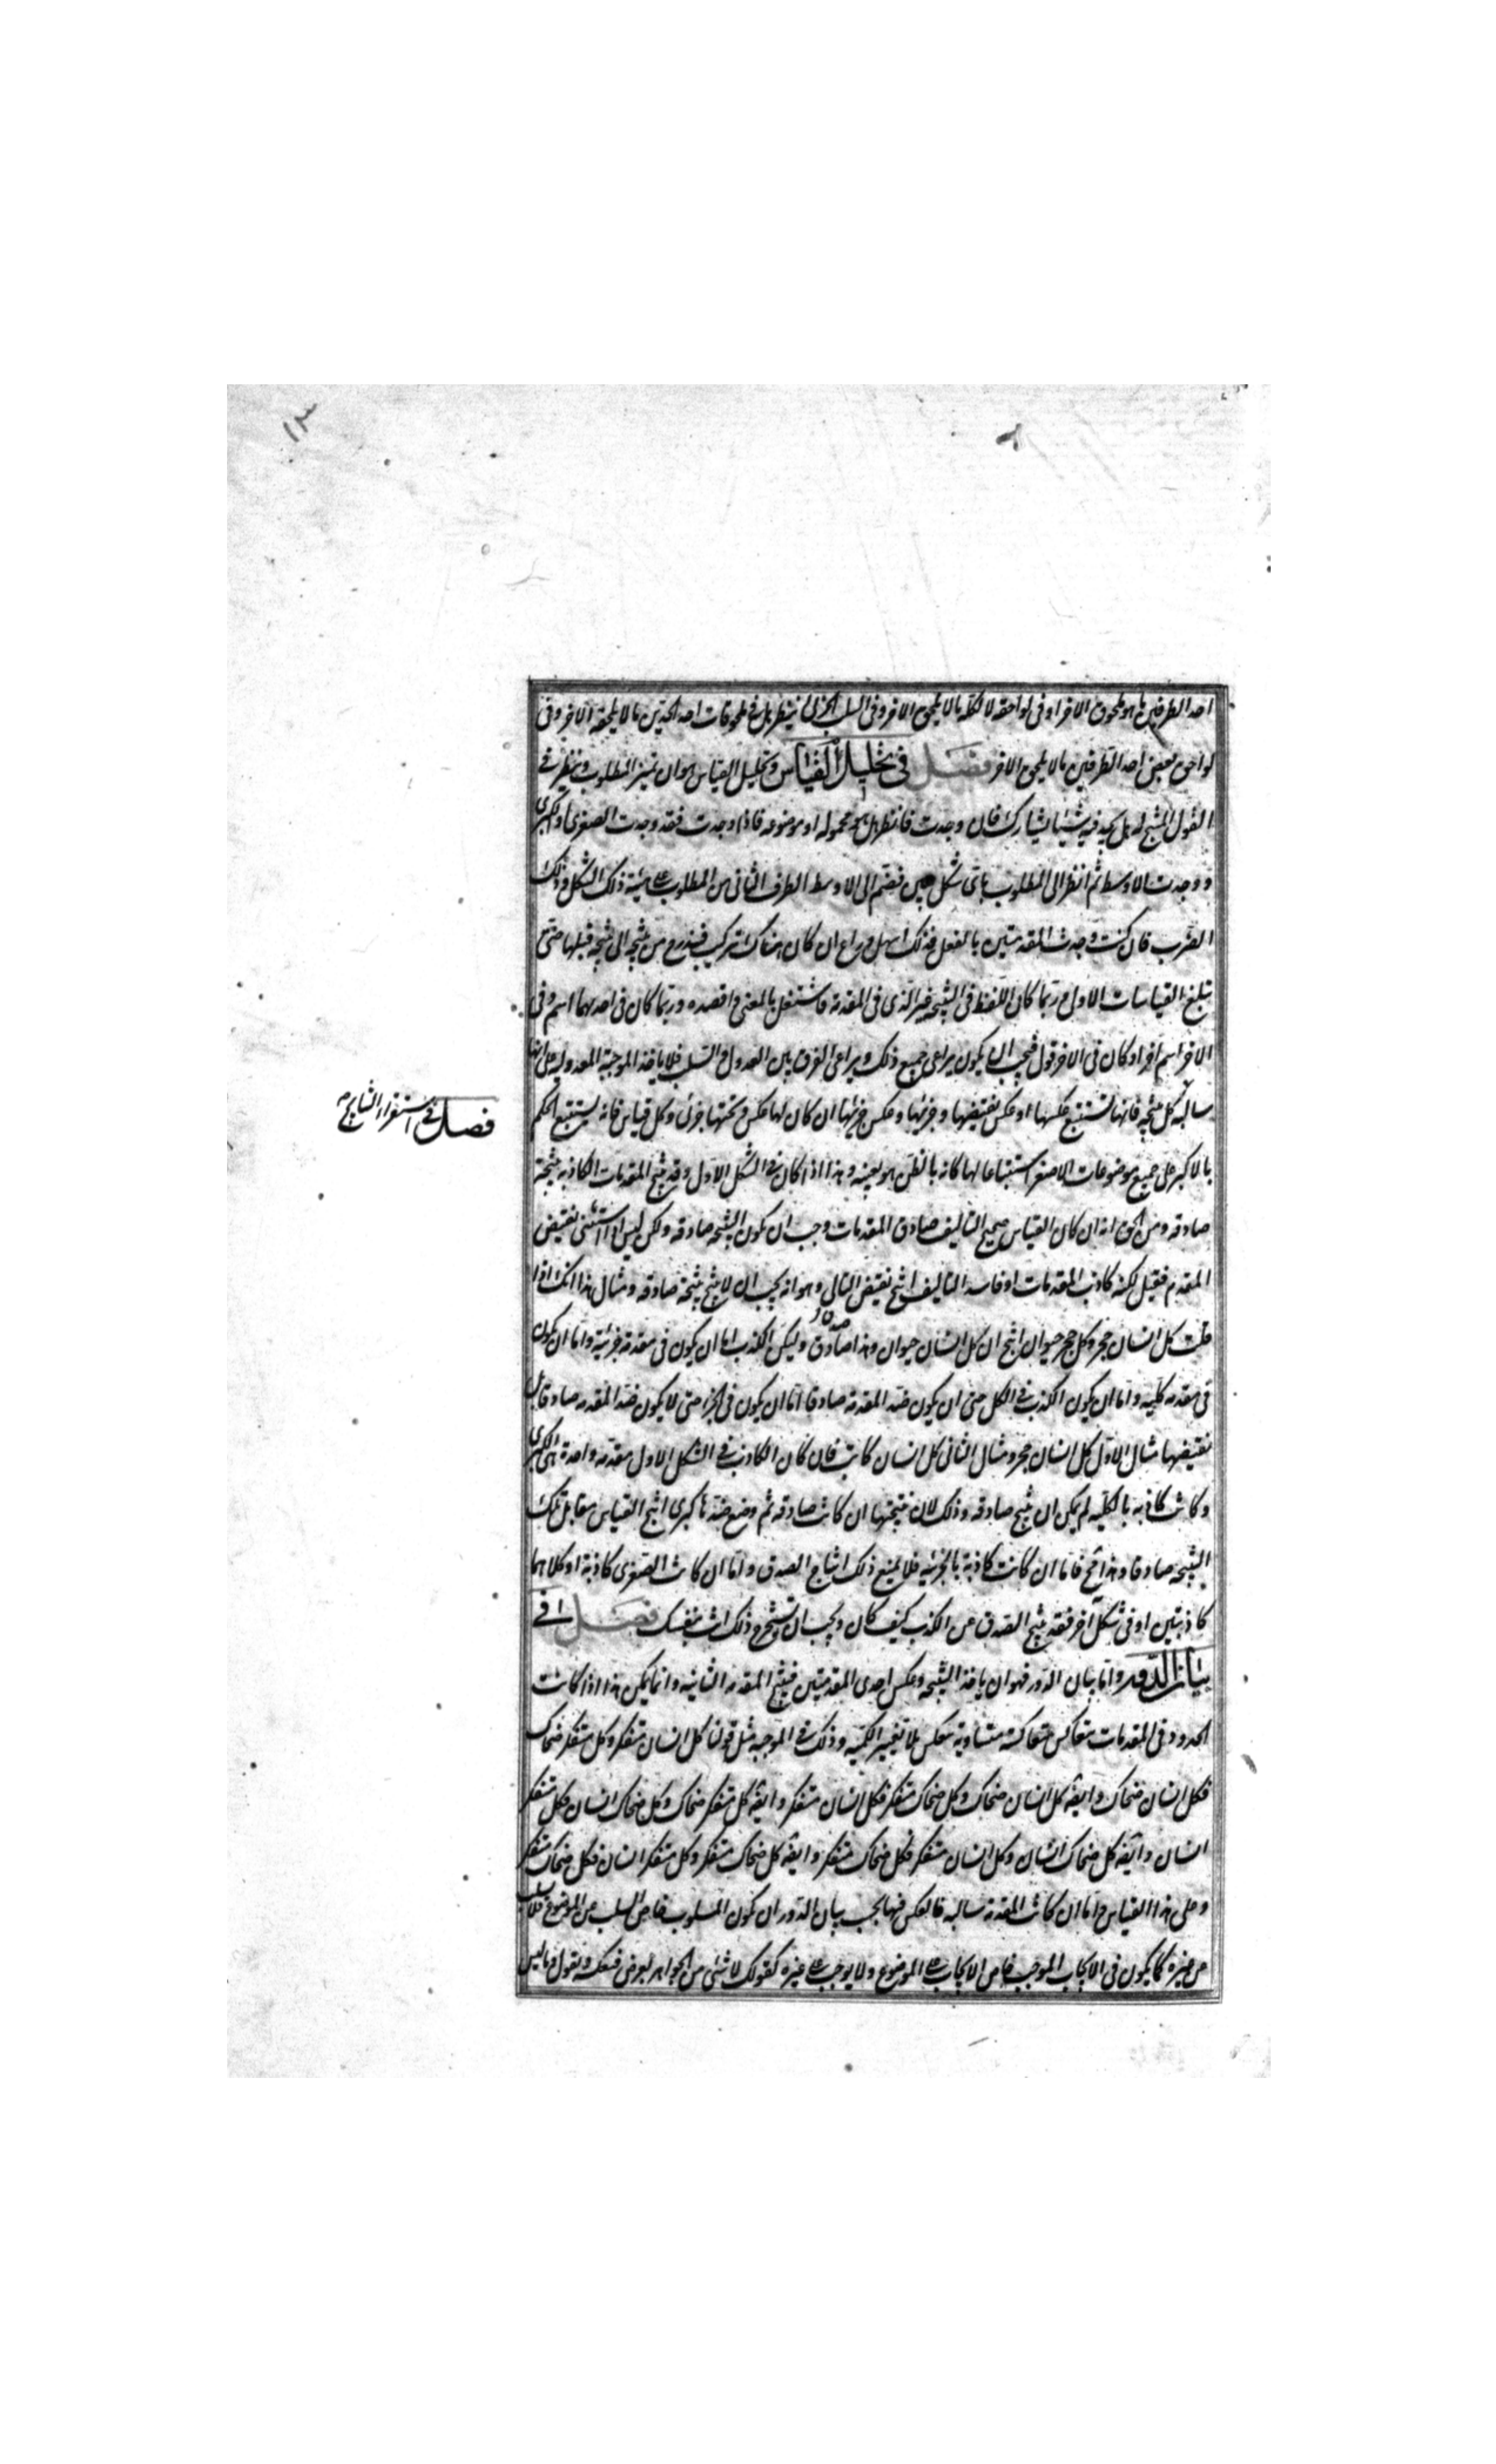 ١٣
احد الطرفين ما هو ملحوق الاخر او فى لواحقه لا لكله ما لا يلحق الاخر وفى السلب الجزئى ينظر هل فى ملحوقات احد الحدين ما لا يلحقه الاخر وفى
لواحق بعض احد الطرفين ما لا يلحق الاخر فصل فى تحليل القياس وتحليل القياس هو ان تميز المطلوب وتنظر فى
القول المنتج له هل تجد فيه شيئا يشاركه فان وجدت فانظر هل هو محموله او موضوعه فاذا وجدت فقد وجدت الصغرى او الكبرى
ووجدت الاوسط ثم انظر الى المطلوب باى شكل يبين فتضم الى الاوسط الطرف الثانى من المطلوب على هيئة ذلك الشكل وذلك
الضرب فان كنت وجدت المقدمتين بالفعل فذلك اسهل وراع ان كان هناك تركيب فتدرج من نتيجة الى نتيجة قبلها حتى
تبلغ القياسات الاول وربما كان اللفظ فى النتيجة غير الذى فى المقدمة فاشتغل بالمعنى واقصده وربما كان فى احديهما اسم وفى
الاخر اسم اخر او كان فى الاخر قول فيجب ان يكون يراعى جميع ذلك ويراعى الفرق بين العدول والسلب فلا ياخذ الموجبة المعدولة على انها
سالبة كل نتيجة فانها تستتبع عكسها او عكس نقيضها وجزئيها وعكس جزئيها ان كان لها عكس وتحتها جزئى وكل قياس فانه يستتبع الحكم
فصل فى استقرار النتايج
بالاكبر على جميع موضوعات الاصغر استتباعا لها كانه بالظن هو بعينه وهذا اذا كان فى الشكل الاول وقد تنتج المقدمات الكاذبة نتيجة
صادقة ومن الحق انه ان كان القياس صحيح التاليف صادق المقدمات وجب ان تكون النتيجة صادقة ولكن ليس اذا استثنى نقيض
المقدم فقيل لكنه كاذب المقدمات او فاسد التاليف انتج نقيض التالى وهو انه يجب ان لا ينتج نتيجة صادقة ومثال هذا انك اذا
قلت كل انسان حجر وكل حجر حيوان انتج ان كل انسان حيوان وهذا صادق وليكن الكذب اما ان يكون فى مقدمة جزئية واما ان يكون
فى مقدمة كلية واما ان يكون الكذب فى الكل حتى ان يكون ضد المقدمة صادقا اما ان يكون فى الجزء حتى لا يكون ضد المقدمة صادقا بل
نقيضها مثال الاول كل انسان حجر ومثال الثانى كل انسان كاتب فان كان الكاذب فى الشكل الاول مقدمة واحدة هى الكبرى
وكانت كاذبة بالكلية لم يمكن ان ينتج صادقة وذلك لان نتيجتها ان كانت صادقة ثم وضع ضدها كبرى انتج القياس مقابل تلك
النتيجة صادقا وهذا مح فاما ان كانت كاذبة بالجزئية فلا يمنع ذلك انتاج الصدق واما ان كانت الصغرى كاذبة او كلاهما
كاذبتين او فى شكل اخر فقد ينتج الصدق عن الكذب كيف كان ويجب ان تستخرج ذلك انت بنفسك فصل فى
بيان الدور واما بيان الدور فهو ان ياخذ النتيجة وعكس احدى المقدمتين فينتج المقدمة الثانية وانما يمكن هذا اذا كانت
الحدود فى المقدمات متعاكس متعاكسة متساوية تنعكس بلا تغيير الكمية وذلك فى الموجبة مثل قولنا كل انسان متفكر وكل متفكر ضحاك
فكل انسان ضحاك وايضه كل انسان ضحاك وكل ضحاك متفكر فكل انسان متفكر وايضه كل متفكر ضحاك وكل ضحاك انسان فكل متفكر
انسان وايضه كل ضحاك انسان وكل انسان متفكر فكل ضحاك متفكر وايضه كل ضحاك متفكر وكل متفكر انسان فكل ضحاك متفكر
وعلى هذا القياس واما ان كانت المقدمة سالبة فالعكس فيها بحسب بيان الدور ان يكون المسلوب خاص السلب عن الموضوع فلا يسلب
عن غيره كما يكون فى الايجاب الموجب خاص الايجاب على الموضوع ولا يوجب على غيره كقولك لا شئ من الجواهر بعرض فنعكسه ونقول وما ليس